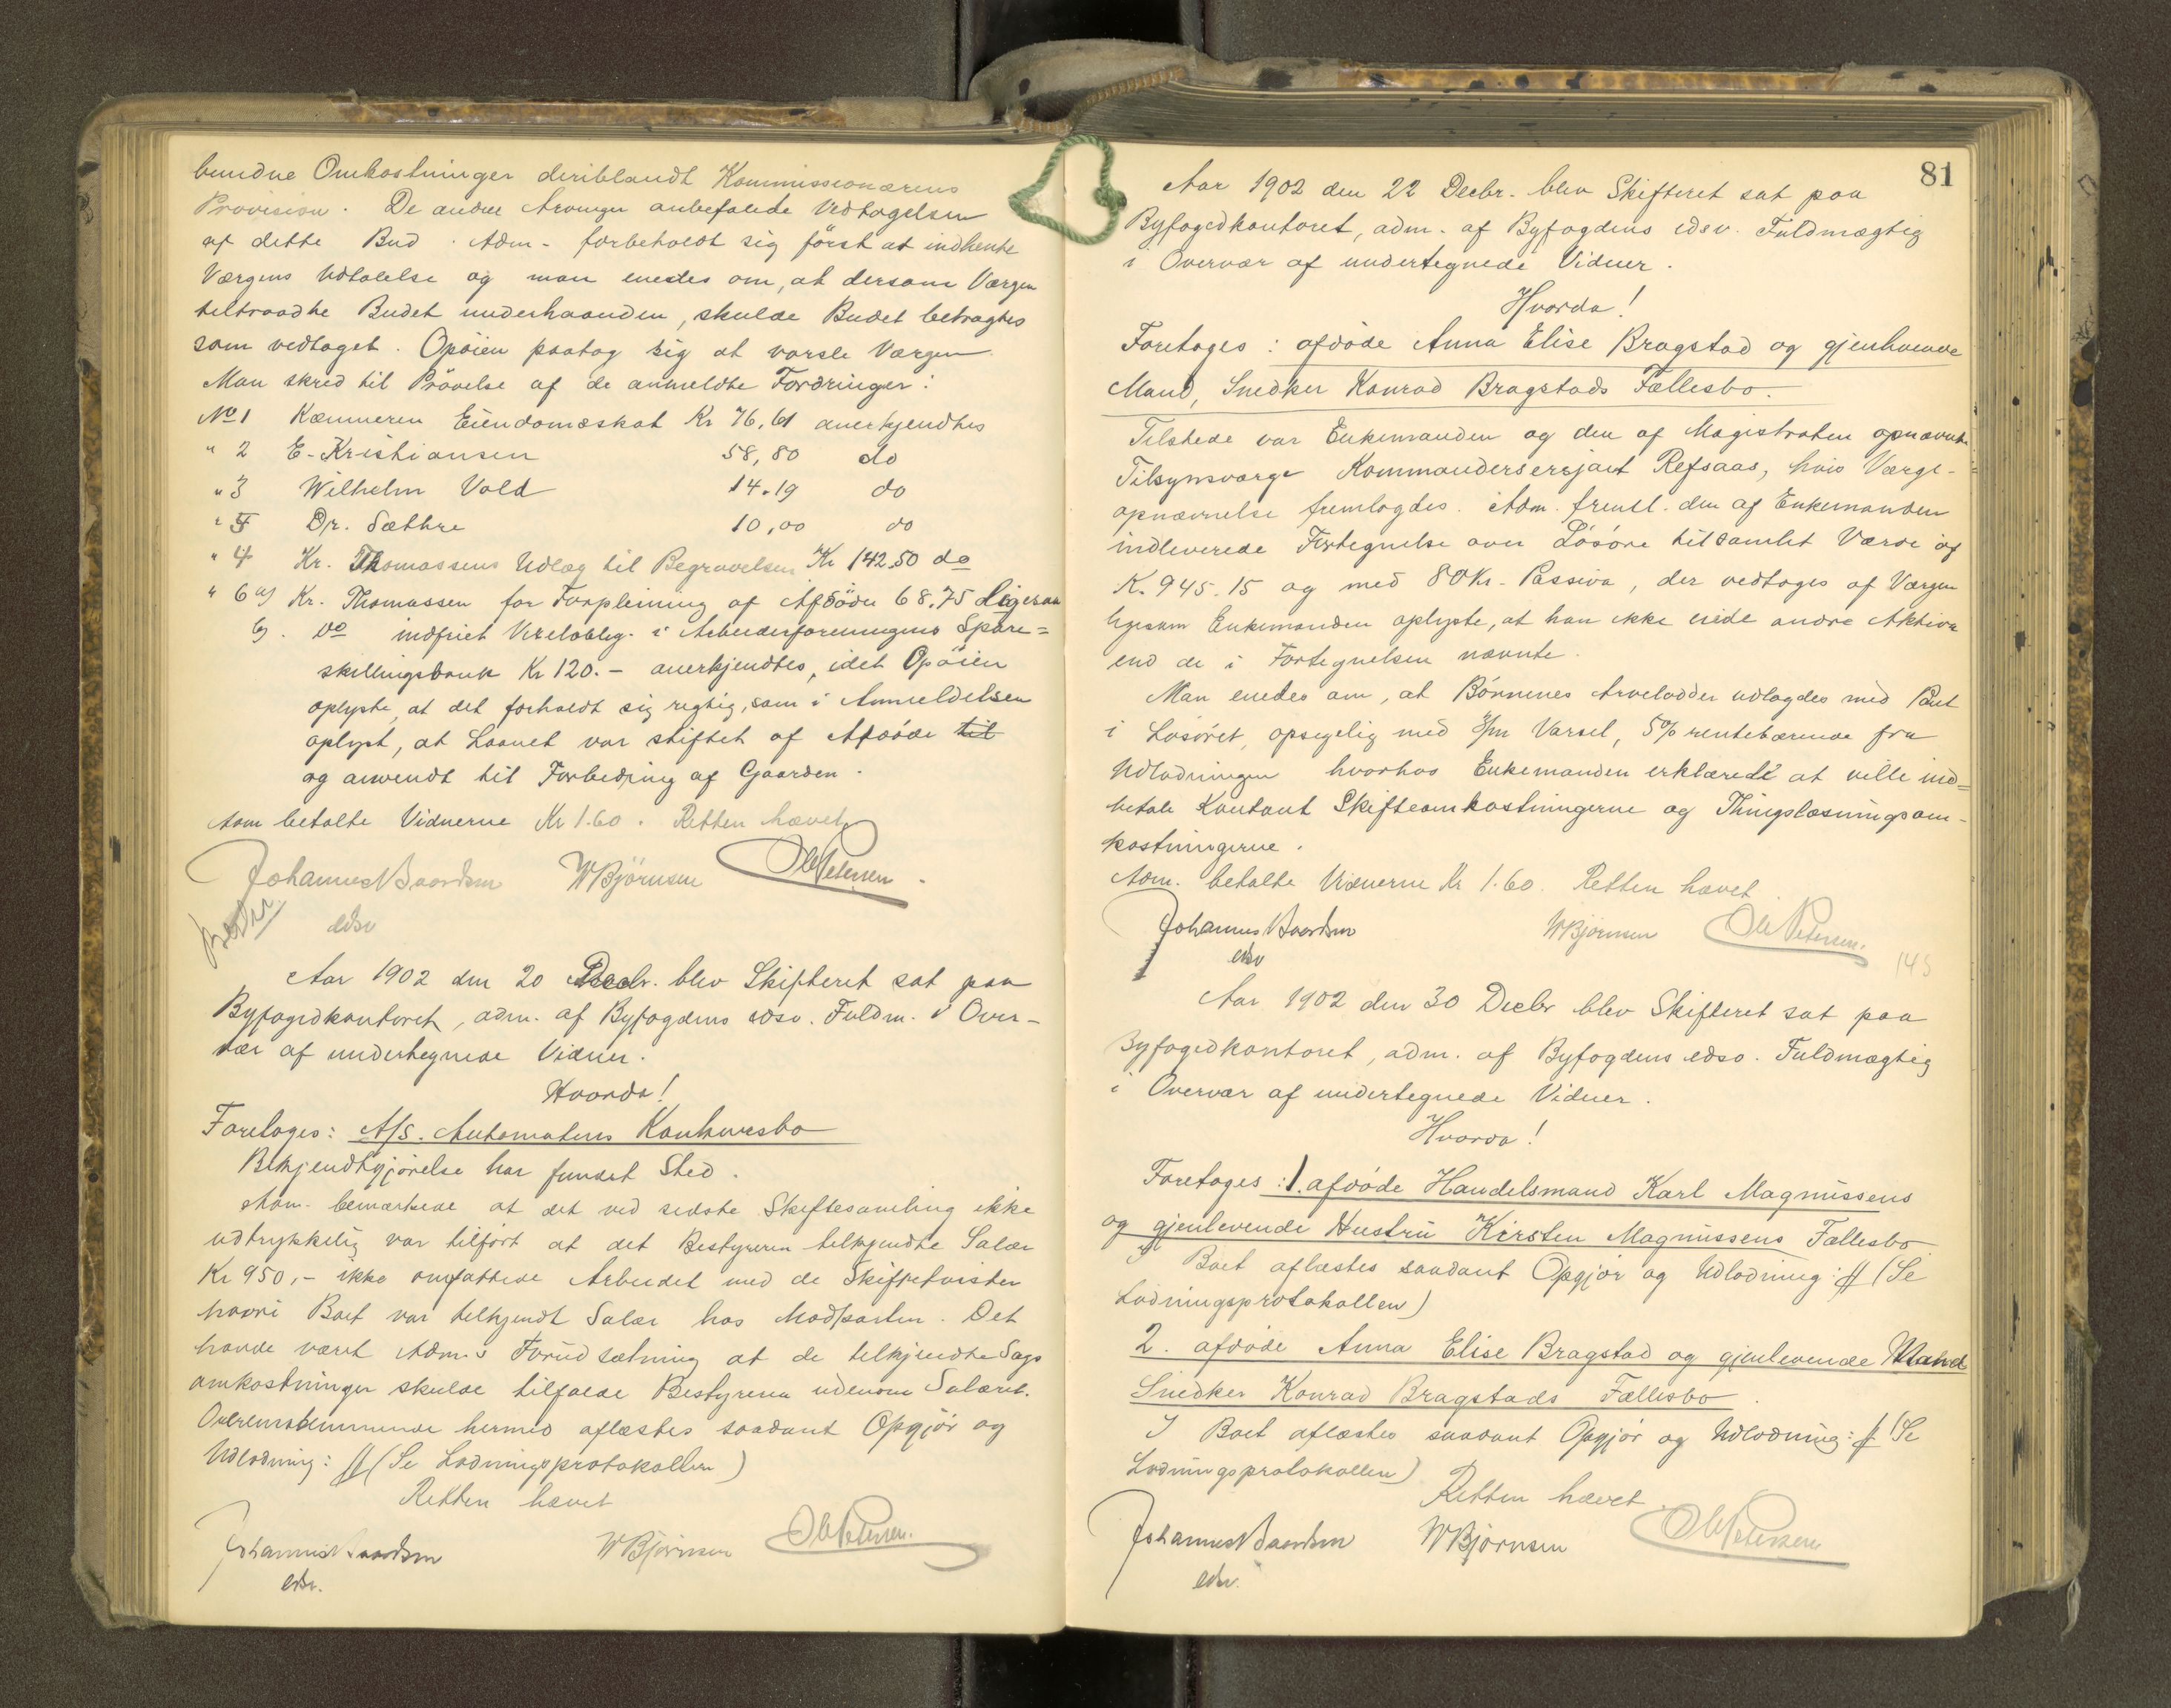 bundne Omkostninger deriblandt Kommissionærens
Provision. De andre Arvinger anbefalede Vedtagelsen
af dette Bud. Adm. forbeholdt sig först at indhente
Værgens Udtalelse og man enedes om, at dersom Værgen
tiltraadte Budet underhaanden, skulde Budet betragtes
som vedtaget. Opöien paatog sig at varsle Værgen.
Man skred til Prövelse af de anmeldte Fordringer:
No 1 Kæmneren Eiendomsskat Kr 76,61 anerkjendtes
" 2 E. Kristiansen 58,80 do
" 3 Wilhelm Vold 14.19 do
" 5 Dr. Sæthre 10,00 do
" 4 Kr. Thomassens Udlæg til Begravelsen Kr 142.50 do
" 6 a) Kr. Thomassen for Forpleining af Afdöde 68.75 Ligesaa
b). do indfriet Vexeloblig. i Arbeiderforeningens Spare=
skillingsbank Kr 120.- anerkjendtes, idet Opöien
oplyste, at det forholdt sig rigtig, som i Anmeldelsen
oplyst, at Laanet var stiftet af Afdöde til
og anvendt til Forbedring af Gaarden.
Adm betalte Vidnerne Kr 1.60. Retten hævet
Johannes Baardsen WBjörnsen Ole Petersen
edsv
Aar 1902 den 20 Decbr. blev Skifteret sat paa
Byfogedkontoret, adm. af Byfogdens edsv. Fuldm. i Over-
vær af undertegnede Vidner.
Hvorda!
Foretages: A/S. Automatens Konkursbo
Bekjendtgjörelse har fundet Sted.
Adm. bemærkede at det ved sidste Skiftesamling ikke
udtrykkelig var tilfört at det Bestyreren tilkjendte Salær
Kr 950,- ikke omfattede Arbeidet med de Skiftetvister
hvori Boet var tilkjendt Salær hos Modparten. Det
havde været Adm.s Forudsætning at de tilkjendte Sags
omkostninger skulde tilfalde Bestyreren udenom Salæret.
Overensstemmende hermed aflæstes saadant Opgjör og
Udlodning: // (Se Lodningsprotokollen)
Retten hævet
Johannes Baardsen WBjörnsen Ole Petersen.
edsv.
81
Aar 1902 den 22 Decbr. blev Skifteret sat paa
Byfogedkontoret, adm. af Byfogdens edsv. Fuldmægtig
i Overvær af undertegnede Vidner.
Hvorda!
Foretages: afdöde Anna Elise Bragstad og gjenlevende
Mand, Snedker Konrad Bragstads Fællesbo.
Tilstede var Enkemanden og den af Magistraten opnævnte
Tilsynsværge Kommandersersjant Refsaas, hvis Værge-
opnævnelse fremlagdes. Adm. freml. den af Enkemanden
indleverede Fortegnelse over Lösöre til samlet Værdi af
K. 945.15 og med 80 Kr. Passiva, der vedtoges af Værgen
ligesom Enkemanden oplyste, at han ikke eiede andre Aktiva
end de i Fortegnelsen nævnte.
Man enedes om, at Börnenes Arvelodder udlagdes med Pant
i Lösöret, opsigelig med 3/m Varsel, 5% rentebærende fra
Udlodningen hvorhos Enkemanden erklærede at ville ind=
betale Kontant Skifteomkostningerne og Thinglæsningsom-
kostningerne.
Adm. betalte Vidnerne Kr 1.60. Retten hævet
Johannes Baardsen WBjörnsen Ole Petersen.
edsv
Aar 1902 den 30 Decbr blev Skifteret sat paa
Byfogedkontoret, adm. af Byfogdens edsv. Fuldmægtig
i Overvær af undertegnede Vidner.
Hvorda!
Foretages: 1. afdöde Handelsmand Karl Magnussens
og gjenlevende Hustru Kirsten Magnussens Fællesbo
I Boet aflæstes saadant Opgjör og Udlodning: // (Se
Lodningsprotokollen)
2. afdöde Anna Elise Bragstad og gjenlevende Mand
Snedker Konrad Bragstads Fællesbo.
I Boet aflæstes saadant Opgjör og Udlodning: // (Se
Lodningsprotokollen)
Retten hævet.
Johannes Baardsen WBjörnsen Ole Petersen
edsv.